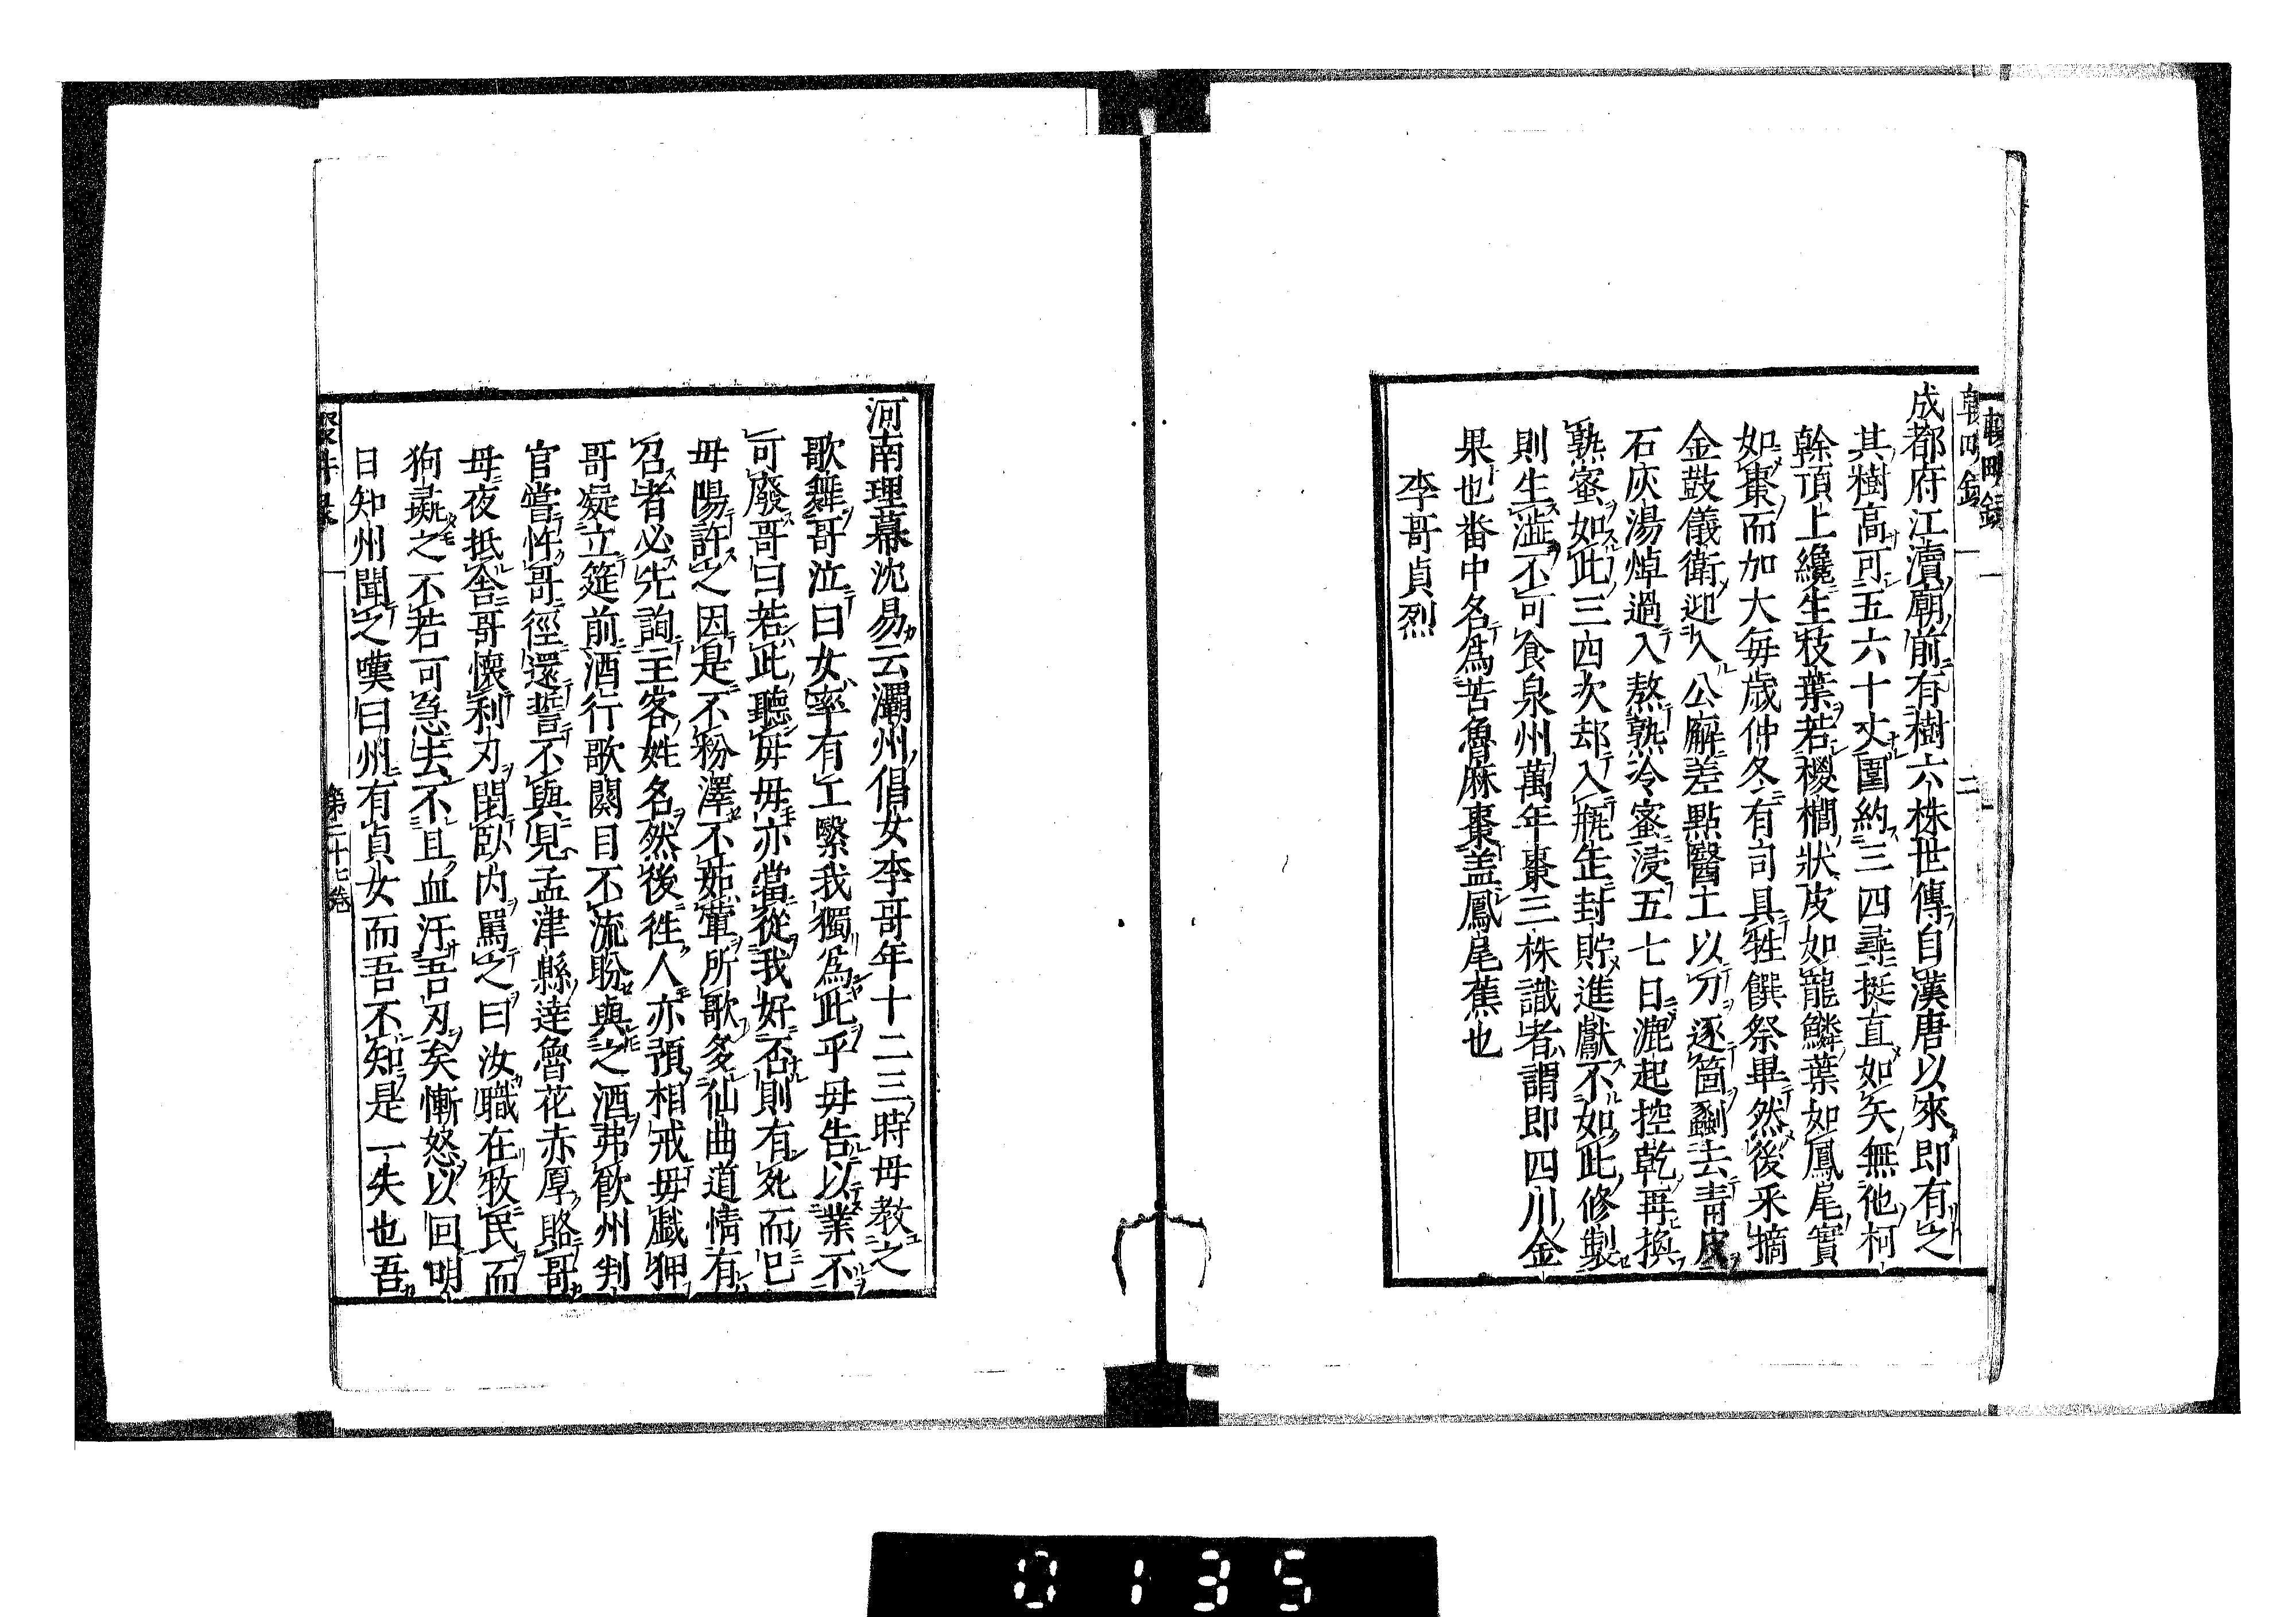 輟畊錄
二
成都府江瀆廟前有樹六株世傳自漢唐以來即有之
其樹高可五六十丈圍約三四尋挺直如矢無他柯
榦頂上纔生枝葉若椶櫚狀皮如龍鱗葉如鳳尾實
如棗而加大每歲仲冬有司具牲饌祭畢然後釆摘
金鼓儀衛迎入公廨差點醫工以刀逐箇劙去青皮
石灰湯焯過入熬熟冷蜜浸五七日漉起控乾再換
熟蜜如此三四次却入瓶缶封貯進獻不如此修製
則生澁不可食泉州萬年棗三株識者謂即四川金
果也番中名爲苦魯麻棗盖鳳尾蕉也
李哥貞烈
河南理幕沈易云灞州倡女李哥年十二三時母教之
歌舞哥泣曰女率有工繄我獨爲此乎母告以業不
可廢哥曰若此聽母母亦當從我好否則有死而已
母陽許之因是不粉澤不茹葷所歌多仙曲道情有
召者必先詢主客姓名然後徃人亦預相戒毋戱狎
哥凝立筵前酒行歌闋目不流盼與之酒弗飲州判
官嘗忤哥徑還誓不與見孟津縣達魯花赤厚賂哥
母夜抵舎哥懷利刃閉臥内罵之曰汝職在牧民而
狗彘之不若可急去不且血汙吾刃矣慚怒以回明
日知州聞之嘆曰州有貞女而吾不知是一失也吾
第二十七卷